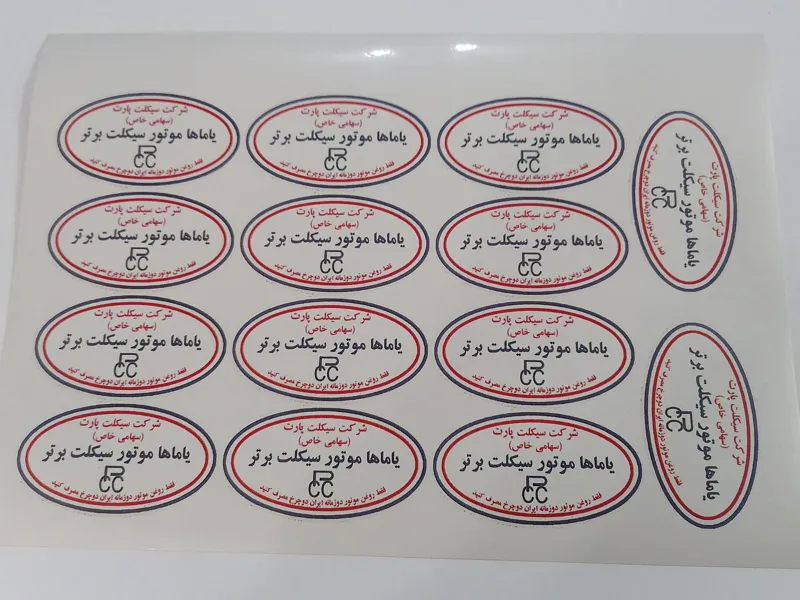 شرکت سیکلت پارت
(سهامی خاص)
یاماها موتور سیکلت برتر
فقط روغن موتور دوزمانه ایران دوچرخ مصرف کنید
شرکت سیکلت پارت
(سهامی خاص)
یاماها موتور سیکلت برتر
فقط روغن موتور دوزمانه ایران دوچرخ مصرف کنید
شرکت سیکلت پارت
(سهامی خاص)
یاماها موتور سیکلت برتر
فقط روغن موتور دوزمانه ایران دوچرخ مصرف کنید
شرکت سیکلت پارت
(سهامی خاص)
یاماها موتور سیکلت برتر
فقط روغن موتور دوزمانه ایران دوچرخ مصرف کنید
شرکت سیکلت پارت
(سهامی خاص)
یاماها موتور سیکلت برتر
فقط روغن موتور دوزمانه ایران دوچرخ مصرف کنید
شرکت سیکلت پارت
(سهامی خاص)
یاماها موتور سیکلت برتر
فقط روغن موتور دوزمانه ایران دوچرخ مصرف کنید
شرکت سیکلت پارت
(سهامی خاص)
یاماها موتور سیکلت برتر
فقط روغن موتور دوزمانه ایران دوچرخ مصرف کنید
شرکت سیکلت پارت
(سهامی خاص)
یاماها موتور سیکلت برتر
فقط روغن موتور دوزمانه ایران دوچرخ مصرف کنید
شرکت سیکلت پارت
(سهامی خاص)
یاماها موتور سیکلت برتر
فقط روغن موتور دوزمانه ایران دوچرخ مصرف کنید
شرکت سیکلت پارت
(سهامی خاص)
یاماها موتور سیکلت برتر
فقط روغن موتور دوزمانه ایران دوچرخ مصرف کنید
شرکت سیکلت پارت
(سهامی خاص)
یاماها موتور سیکلت برتر
فقط روغن موتور دوزمانه ایران دوچرخ مصرف کنید
شرکت سیکلت پارت
(سهامی خاص)
یاماها موتور سیکلت برتر
فقط روغن موتور دوزمانه ایران دوچرخ مصرف کنید
شرکت سیکلت پارت
(سهامی خاص)
یاماها موتور سیکلت برتر
فقط روغن موتور دوزمانه ایران دوچرخ مصرف کنید
شرکت سیکلت پارت
(سهامی خاص)
یاماها موتور سیکلت برتر
فقط روغن موتور دوزمانه ایران دوچرخ مصرف کنید